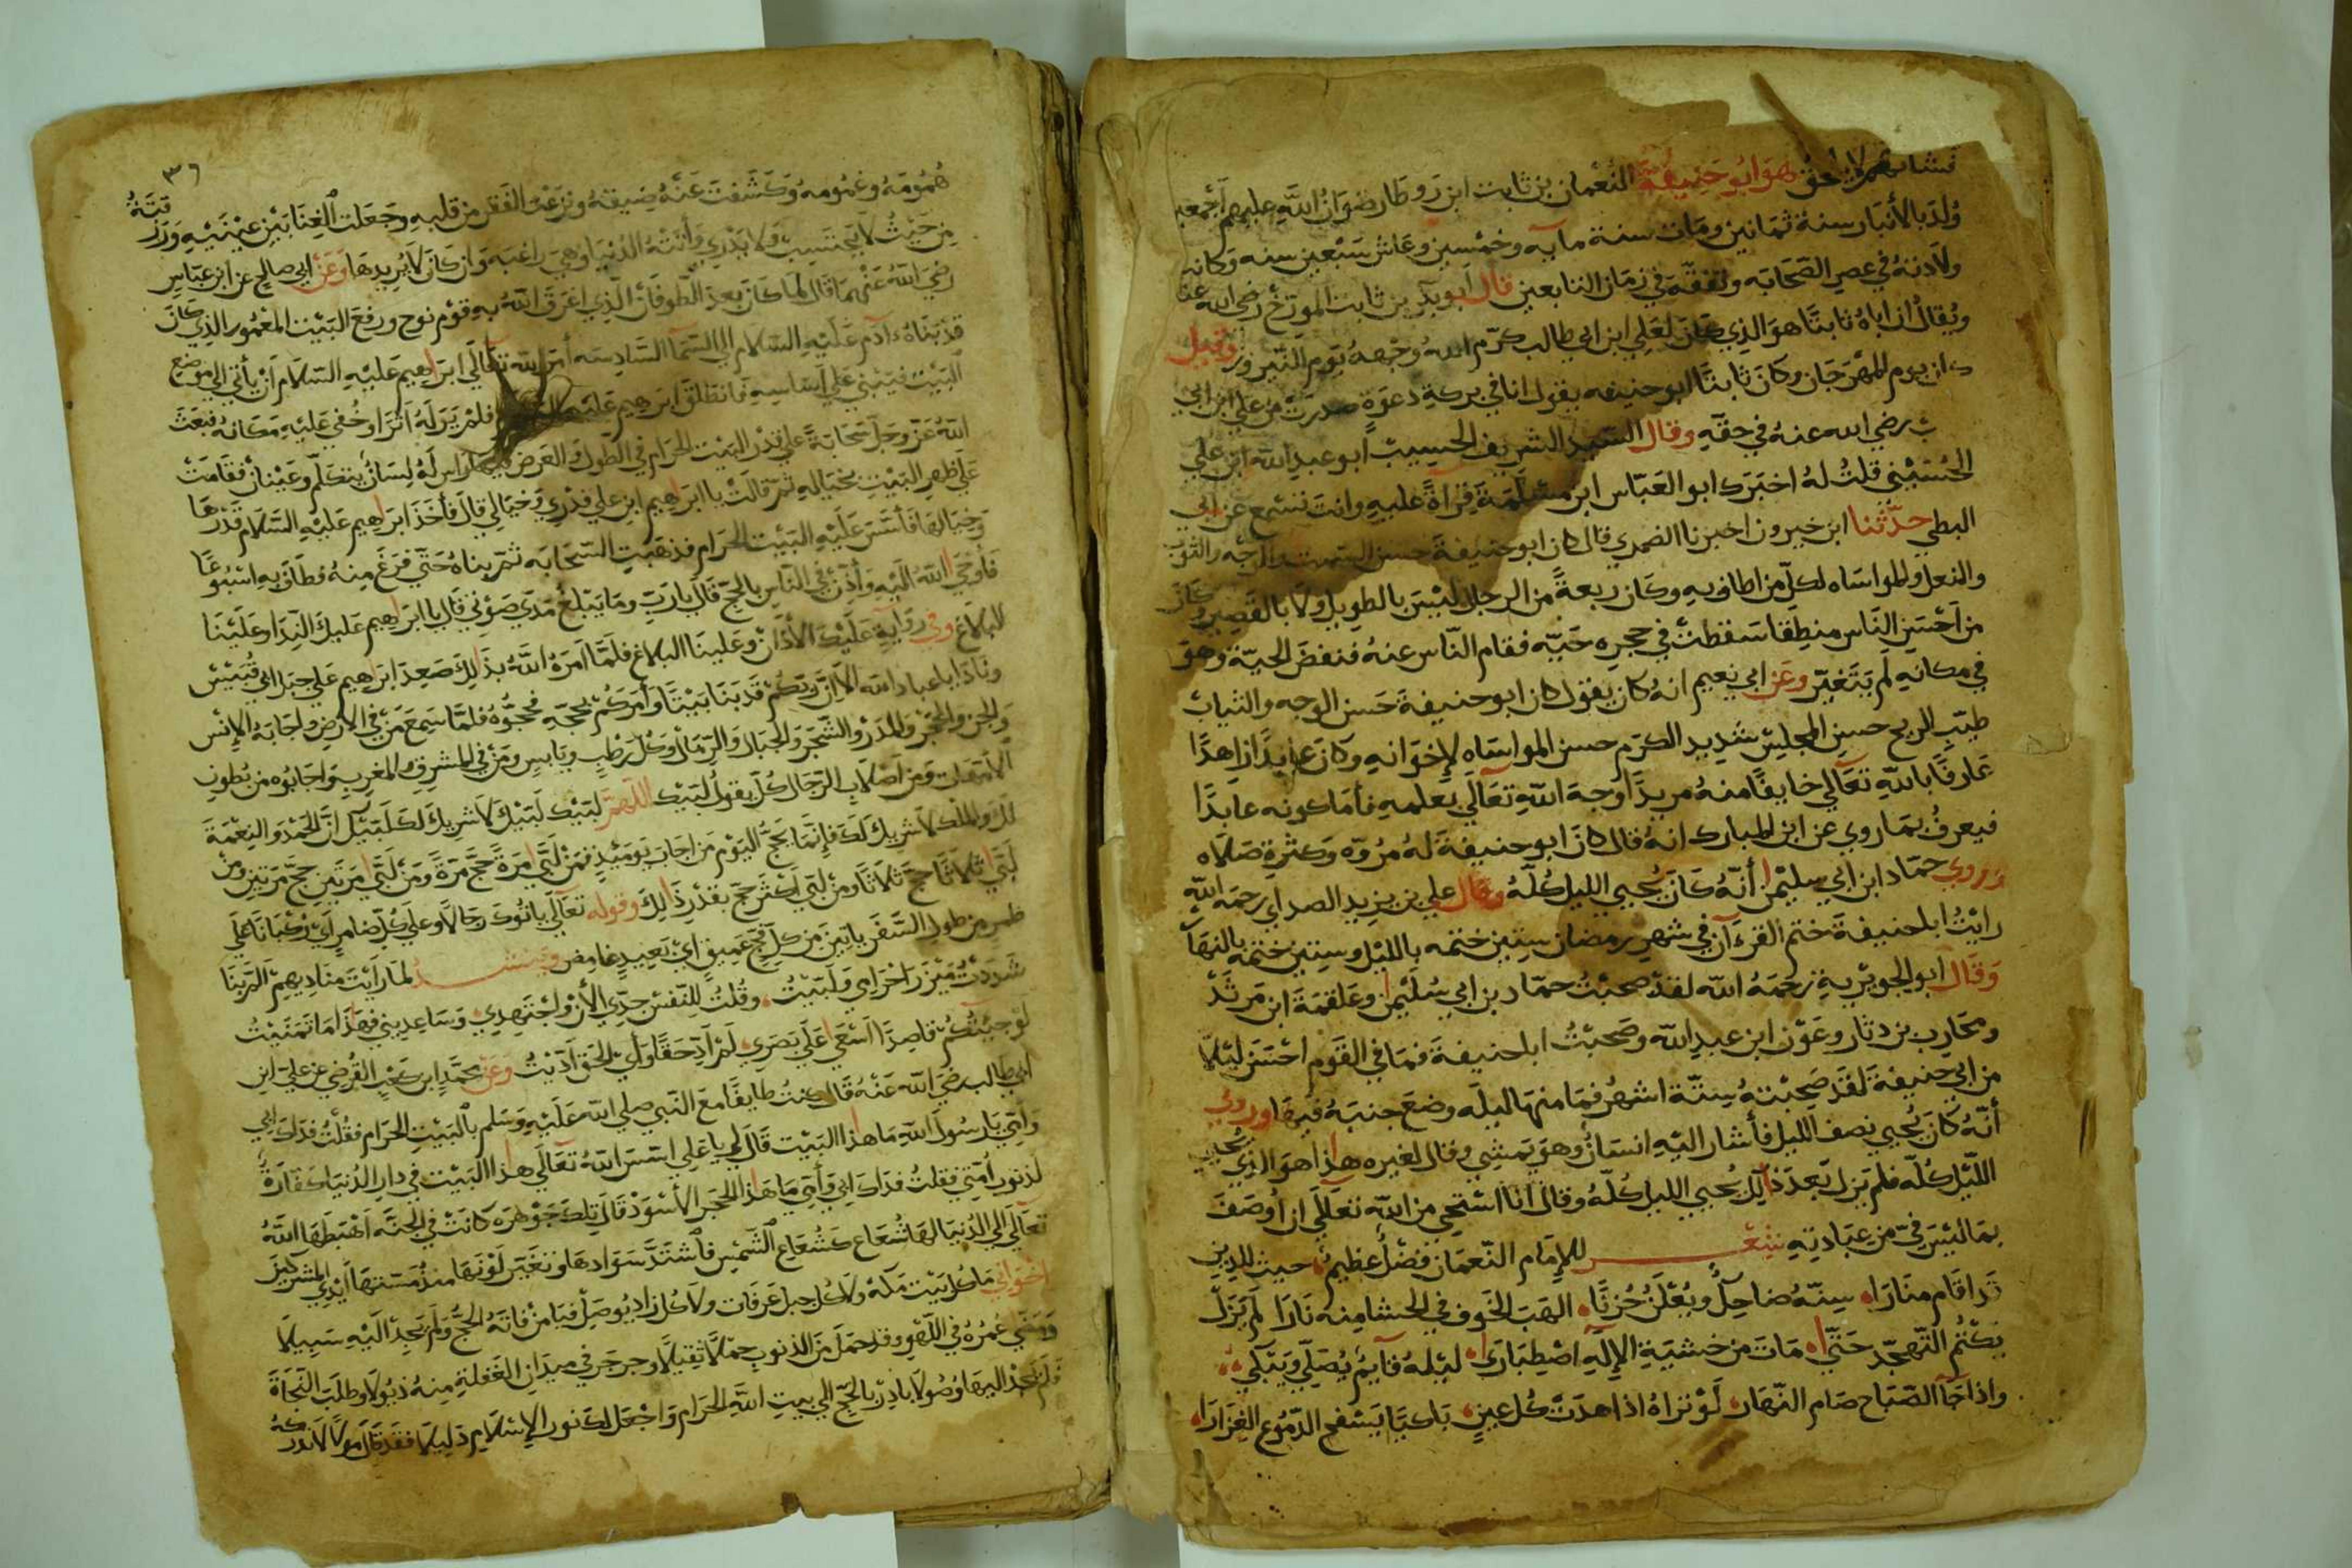 هو ابو حنيفة النعمان بن ثابت ابن زوطا رضوان الله عليهم أجمعين
ولد بالأنبار سنة ثمانين ومات سنة مايه وخمسين وعاش سبعين سنه وكانت
ولادته في عصر الصحابه وتفقّه في زمان التابعين قال ابو بكر بن ثابت المورّخ رضي الله عنه
ويقال ان اباه ثابتًا هو الذي كان لعلي ابن ابي طالب كرّم الله وجهه يوم النيروز وقيل
كان يوم المهرجان وكان ثابتًا ابو حنيفه يقول انا في بركة دعوة صدرت من علي ابن ابي
رضي الله عنه في حقّه وقال السيد الشريف الحسيب ابو عبد الله ابن علي
الحسيني قلت له اخبرك ابو العبّاس ابن مسلمة قراة عليه وانت تسمع عن ابي
البطي حدّثنا ابن خيرون اخبرنا الضمري قال كان ابو حنيفة حسن السمت والوجه والثوب
والنعل والمواساه لكل من اطاف به وكان ربعة من الرجال ليس بالطويل ولا بالقصير كان
من أحسن الناس منطقا سقطت في حجره حيّه فقام النّاس عنه فنفض الحيّة وهو
في مكانه لم يتغيّر وعن ابي نعيم انه كان يقول كان ابو حنيفة حسن الوجه والثياب
طيّب الريح حسن المجلس شديد الكرم حسن المواساه لإخوانه وكان عابدًا زاهدًا
عارفًا بالله تعالى خايفًا منه مريدًا وجه الله تعالى بعلمه فأما كونه عابدًا
فيعرف بما روي عن ابن المبارك انه قال كان ابو حنيفة له مروّه وكثرة صلاه
وروي حمّاد ابن ابي سليمن أنّه كان يحيي الليل كلّه وقال علي بن يزيد الصداي رحمه الله
رايت ابا حنيفة ختم القرءآن في شهر رمضان ستين ختمه بالليل وستين ختمه بالنهار
وقال ابو الجويرية رحمه الله لقد صحبت حمّاد بن ابي سليمن وعلقمة ابن مرثد
ومحارب بن دثار وعون ابن عبد الله وصحبت ابا حنيفة فما في القوم احسن ليلا
من ابي حنيفة لقد صحبته ستّة اشهر فما منها ليله وضع جنبه فيها وروي
أنّه كان يحيي نصف الليل فأشار اليه انسان وهو يمشي وقال لغيره هذا هو الذي يحيي
الليل كلّه فلم يزل بعد ذلك يحيي الليل كلّه وقال انا استحي من الله تعالى ان أوصف
بما ليس فيّ من عبادته شعر للإمام النّعمان فضل عظيم حيث للدين
قد اقام منارا سنّه ضاحك ويعلن حزنًا الهب الخوف في الحشا منه نارا لم يزل
يكتم التهجّد حتى مات من خشية الإله اصطبارا ليله قايم يصلّي ويبكي
واذا جا الصّباح صام النّهار لو تراه اذا هدت كل عين باكيًا يسفح الدّموع الغزارا
٣٦
همومه وغمومه وكشفت عنه ضيقه ونزعت الفقر من قلبه وجعلت الغنا بين عينيه ورزقته
من حيث لا يحتسب ولا يدري وأتته الدنيا وهي راغبه وان كان لا يريدها وعن ابي صالح عن ابن عبّاس
رضي الله عنهما قال لما كان بعد الطوفان الّذي اغرق الله به قوم نوح ورفع البيت المعمور الذي كان
قد بناه ءادم عليه السلام الى السما السادسه أمر الله تعالى ابراهيم عليه السلام أن يأتي الي موضع
البيت فيبني علي اساسه فانطلق ابراهيم عليه فلم ير له أثرا وخفي عليه مكانه فبعث
الله عز وجل سحابة علي قدر البيت الحرام في الطول والعرض فيها راس له لسان يتكلّم وعينان فقامت
علي ظهر البيت بحياله ثم قالت يا ابراهيم ابن علي قدري وحيالي قال فأخذ ابراهيم عليه السلام قدرها
وحيالها فأسّس عليه البيت الحرام فذهبت السّحابه ثمّ بناه حتي فرغ منه وطاف به اسبوعًا
فأوحي الله اليه وأذّن في النّاس بالحجّ قال يا ربّ وما يبلغ مدي صوتي قال يا ابراهيم عليك النّدا وعلينا
البلاغ وفي رواية عليك الأذان وعلينا البلاغ فلمّا امره الله بذلك صعد ابراهيم علي جبل ابي قبيس
ونادا يا عباد الله الا ان ربكم قد بنا بيتًا وأمركم بحجّه فحجّوه فلمّا سمع من في الأرض واجابه الإنس
والجن والحجر والمدر والشّجر والجبال والرّمال وكل رطب ويابس ومن في المشرق والمغرب واجابوه من بطون
الأمهات ومن اصلاب الرّجال كلّ يقول لبيك اللهمّ لبيك لبيك لا شريك لك لبيك ان الحمد والنعمة
لك والملك لا شريك لك فإنّما يحج اليوم من اجاب يوميذ فمن لبّي مرة حجّ مرة ومن لبّي مرتين حجّ مرتين ومن
لبّي ثلاثًا حجّ ثلاثًا ومن لبّي اكثر حج بقدر ذالك وقوله تعالى ياتوك رجالا وعلي كل ضامر اي ركبانًا علي
ضمر من طول السّفر ياتين من كلّ فجّ عميق اي بعيد غامض وينشد لما رايت مناديهم المّ بنا
شددت ميزر احرامي ولبّيت وقلت للنّفس جدّي الأن واجتهدي وساعديني فهذا ما تمنّيت
لو جيتكم قاصدًا أسعي علي بصري لم أدّ حقًا واي الحق ادّيت وعن محمّد ابن كعب القرضي عن علي ابن
ابي طالب رضي الله عنه قال كنت طايفًا مع النّبي صلي الله عليه وسلم بالبيت الحرام فقلت فداك ابي
وأمّي يا رسول الله ما هذا البيت قال لي يا علي اسّس الله تعالى هذا البيت في دار الدّنيا كفّارة
لذنوب أمّتي فقلت فداك ابي وأمّي ما هذا الحجر الأسود قال تلك جوهره كانت في الجنّه أهبطها الله
تعالى الى الدّنيا لها شعاع كشعاع الشّمس فاشتدّ سوادها وتغيّر لونها منذ مسّتها أيدي المشركين
اخواني ما كل بيت مكّة ولا كل جبل عرفات ولا كل زاد يوصل فيا من فاته الحجّ ولم يجد اليه سبيلا
عمره في اللهو وقد حمل من الذنوب حملًا ثقيلًا وجرجر في ميدان الغفلة منه ذيولا وطلب النّجاة
فلم يجد اليها وصولا بادر بالحجّ الي بيت الله الحرام واجعل لك نور الإسلام دليلا فقد قال مولا لا تدركه